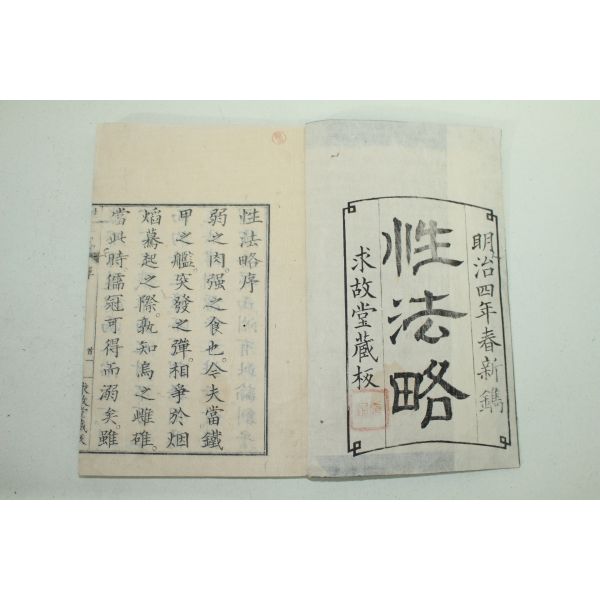 明治四年春新鐫
性法略
求故堂藏板
性法略序
弱之肉。强之食也。今夫當鐵
甲之艦。突發之彈。相爭於烟
焰驀起之際。孰知烏之雌雄。
當此時儒冠可得而溺矣。雖
序
求故堂藏板